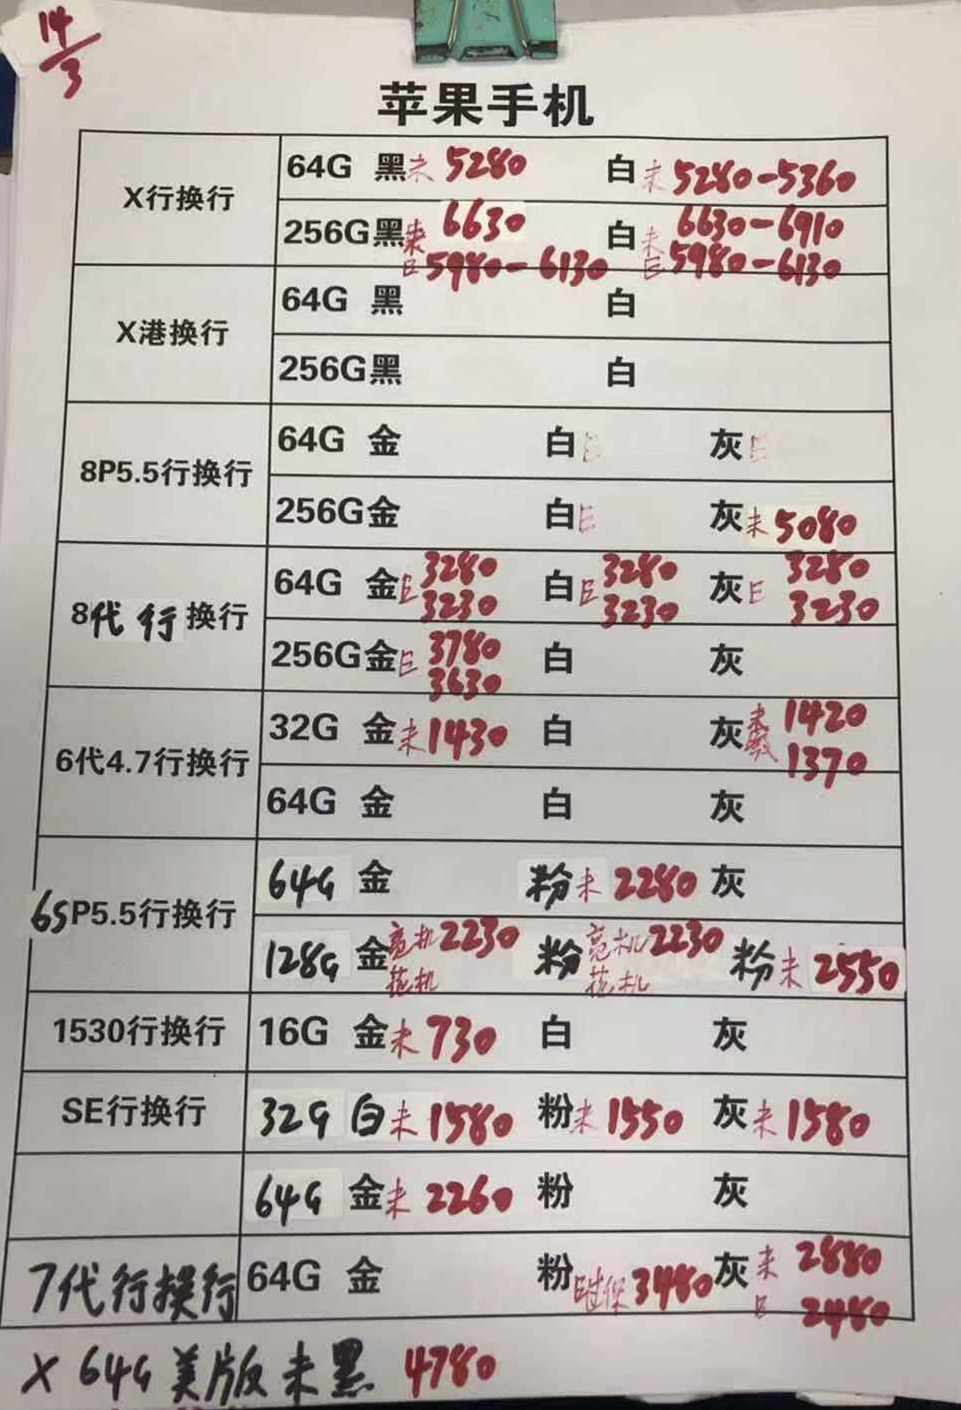 14/3
苹果手机
X行换行 64G 黑未 5280 白未 5280-5360
256G黑未 6630 白未 6630-6910
5980-6130 5980-6130
X港换行 64G 黑 白
256G黑 白
8P5.5行换行 64G 金 白 灰
256G金 白 灰未 5080
8代行换行 64G 金 3280 白 3280 灰 3280
3230 3230 3230
256G金 3780 白 灰
3630
6代4.7行换行 32G 金未1430 白 灰未 1420
1370
64G 金 白 灰
6SP5.5行换行 64G 金 粉未 2280 灰
128G 金 2230 粉 2230 粉未 2550
花机 花机
1530行换行 16G 金未 730 白 灰
SE行换行 32G 白未 1580 粉未 1550 灰未 1580
64G 金未 2260 粉 灰
7代行换行 64G 金 粉 过保 3480 灰未 2880
2480
X 64G 美版未黑 4780